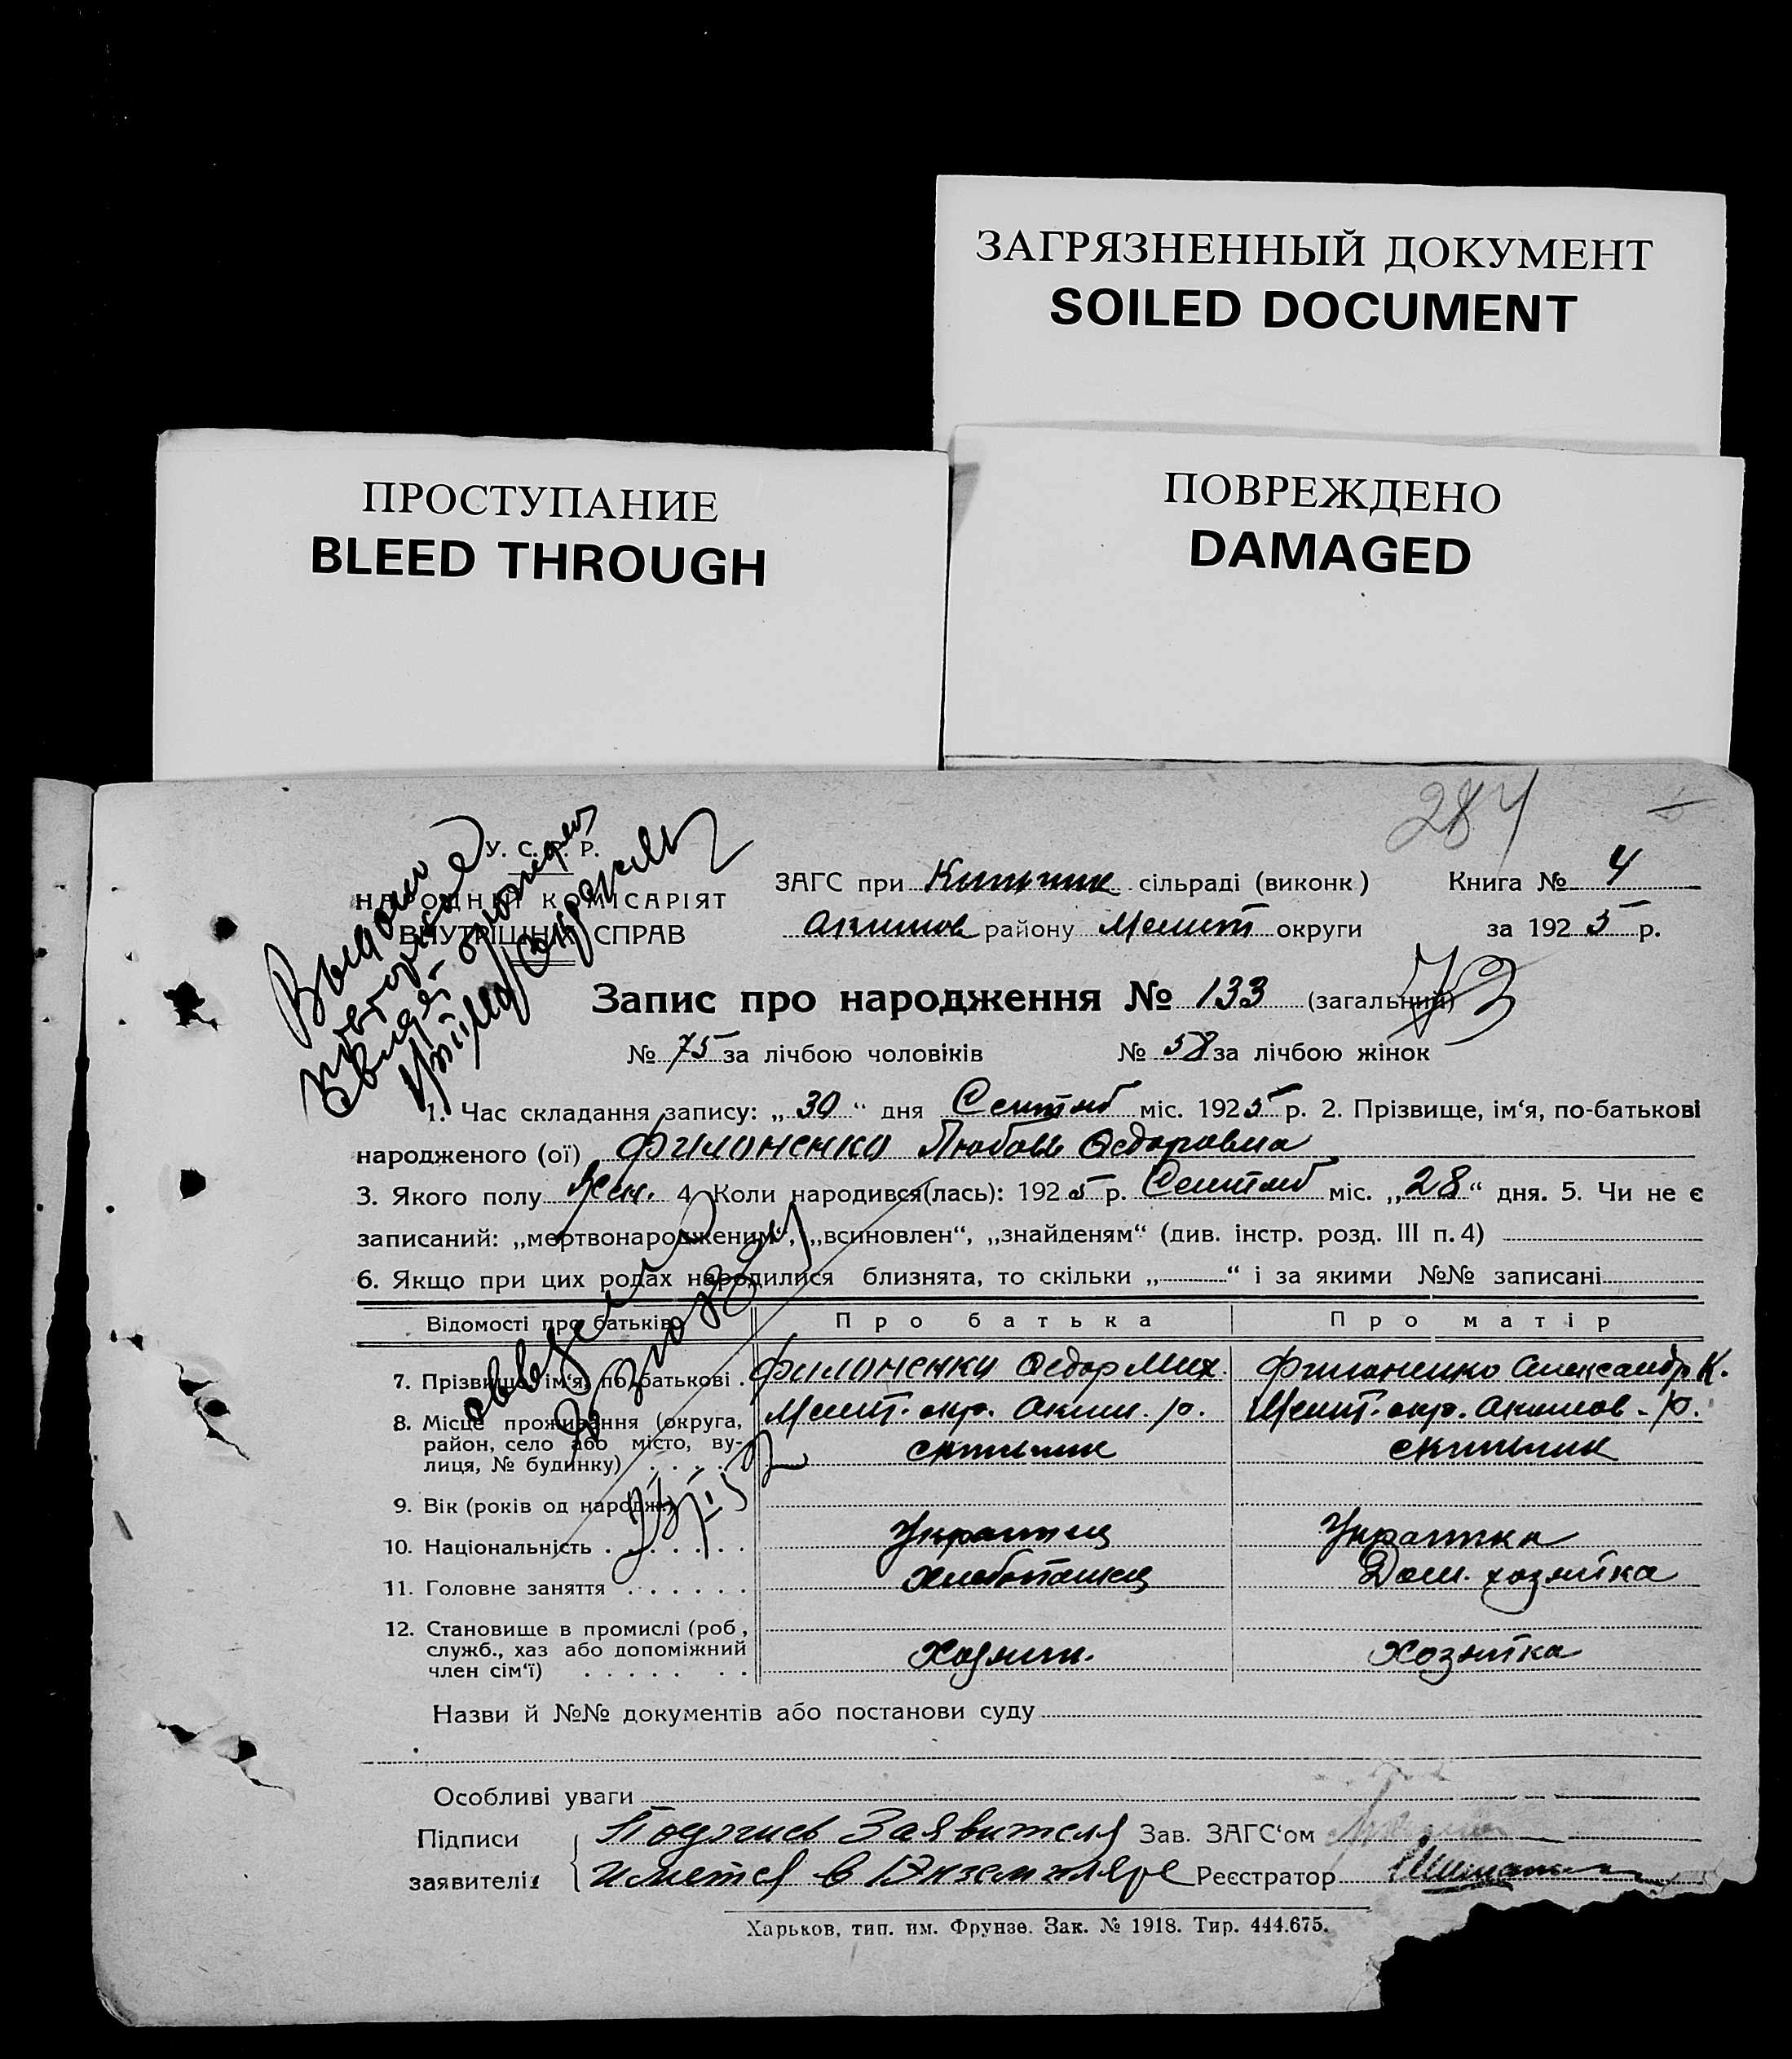 ЗАГРЯЗНЕННЫЙ ДОКУМЕНТ
SOILED DOCUMENT
ПРОСТУПАНИЕ
BLEED THROUGH
ПОВРЕЖДЕНО
DAMAGED
284
У. С. Р. Р.
НАРОДНИЙ КОМІСАРІЯТ
ВНУТРІШНІХ СПРАВ
Выдано
повторное
ЗАГС при сільраді (виконк.) Книга № 4
Акимов району Мелит округи за 1925 р.
Запис про народження № 133 (загальний) 73
№ 75 за лічбою чоловіків № 58 за лічбою жінок
1. Час складання запису: „30“ дня Сентяб міс. 1925 р. 2. Прізвище, ім‘я, по-батькові
народженого (ої) Филоненко Любовь Федоровна
3. Якого полу Жен. 4. Коли народився(лась): 1925 р. Сентяб міс. „28“ дня. 5. Чи не є
записаний: „мертвонародженим“, „всиновлен“, „знайденям“ (див. інстр. розд. III п. 4)
6. Якщо при цих родах народилися близнята, то скільки „ “ і за якими №№ записані
Відомості про батьків Про батька Про матір
7. Прізвище, ім‘я, по-батькові . Филоненко Федор Мих. Филоненко Александр К.
8. Місце проживання (округа, Мелит. окр. Аким. р. Мелит. окр. Акимов. р.
район, село або місто, ву-
лиця, № будинку)
9. Вік (років од народж.)
10. Національність Украинец Украинка
11. Головне заняття Хлебопашец Дом. хозяйка
12. Становище в промислі (роб.,
служб., хаз або допоміжний
член сім‘ї) Хозяин. Хозяйка
Назви й №№ документів або постанови суду
Особливі уваги
Підписи Подпись Заявителя Зав. ЗАГС‘ом
заявителів Имется в Экземпляре Реєстратор
Харьков, тип. им. Фрунзе. Зак. № 1918. Тир. 444.675.